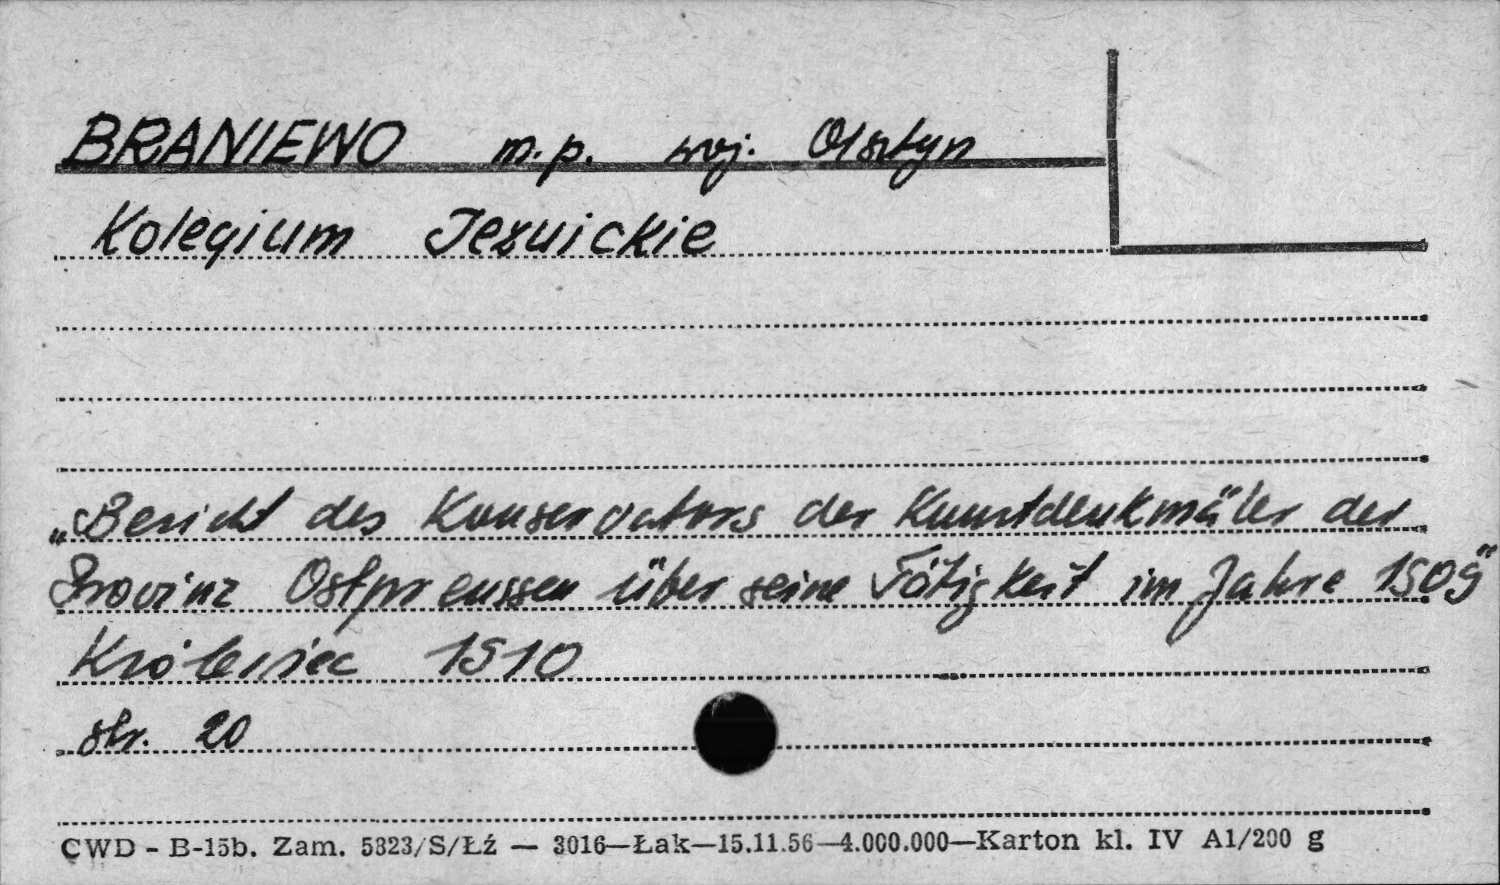 BRANIEWO m.p. woj. Olsztyn
Kolegium Jezuickie
„Bericht des Konservators der Kunstdenkmäler der
Provinz Ostpreussen über seine Tätigkeit im Jahre 1909"
Królewiec 1910
str. 20
CWD - B-15b. Zam. 5823/S/Łź — 3016—Łak—15.11.56—4.000.000—Karton kl. IV A1/200 g